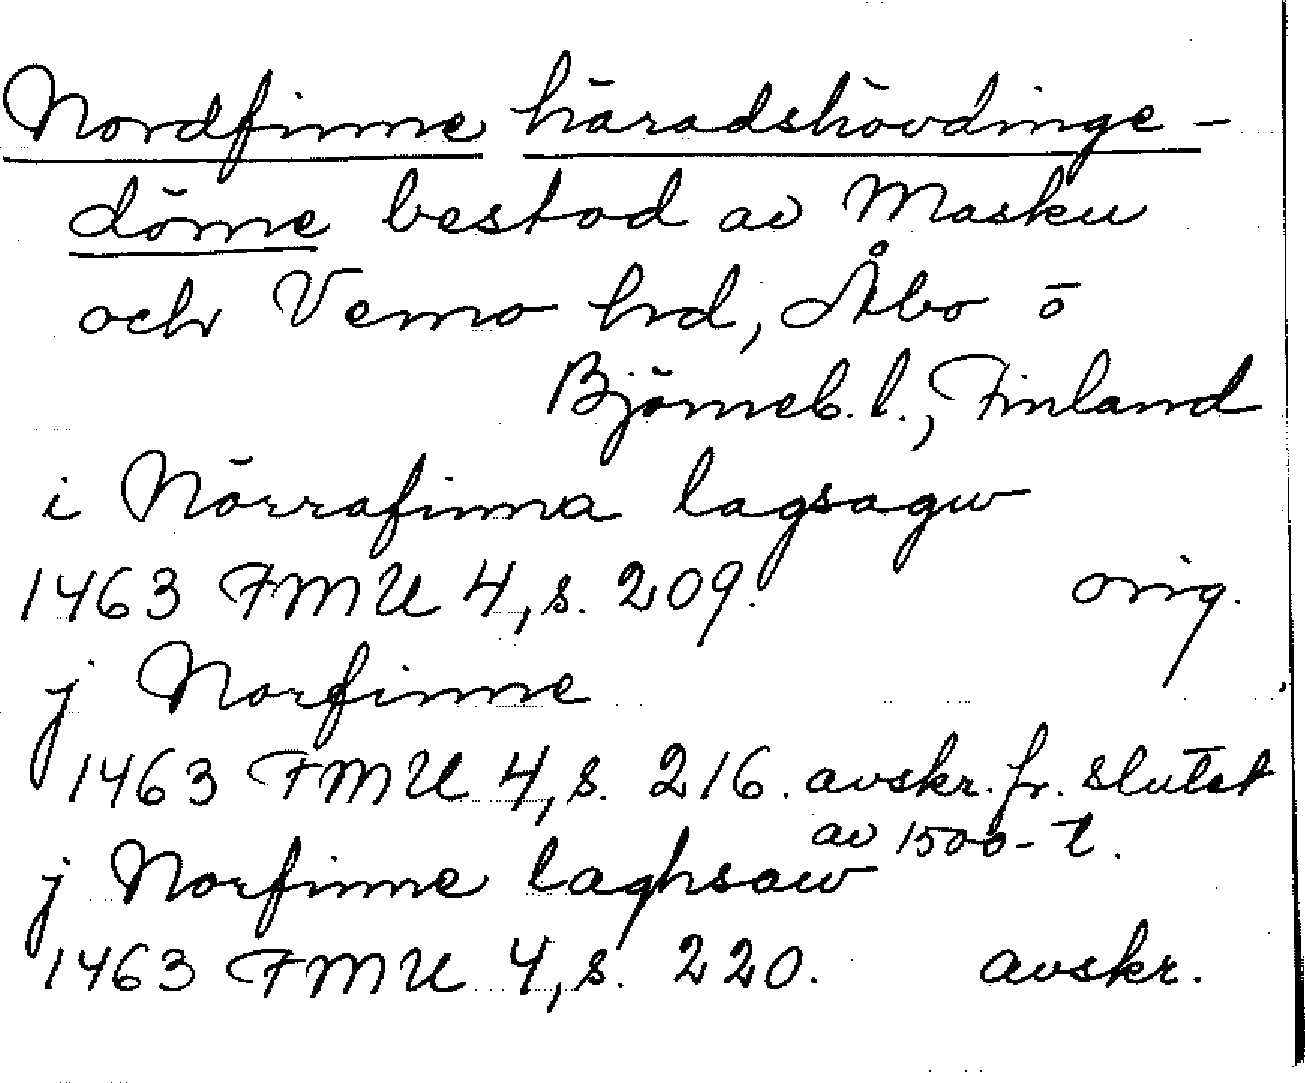 Nordfinne häradshövdinge-
döme bestod av Masku
och Vemo hrd, Åbo o
Björneb. l., Finland
i Nörrafinna lagsagw
1463 FMU 4, s. 209. orig.
j Norfinne
1463 FMU 4, s. 216. avskr. fr. slutet
av 1500-t.
j Norfinne laghsaw
1463 FMU 4, s. 220. avskr.